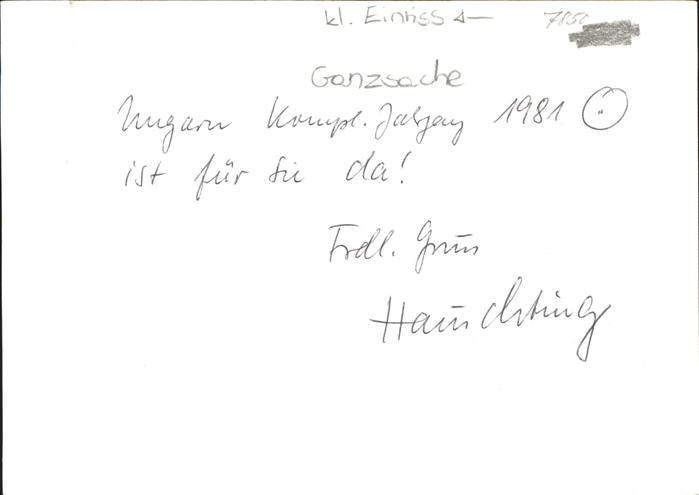 kl. Einriss
7850
Ganzsache
Ungarn kompl. Jahrgang 1981 ⊙
ist für Sie da!
Frdl. Gruß